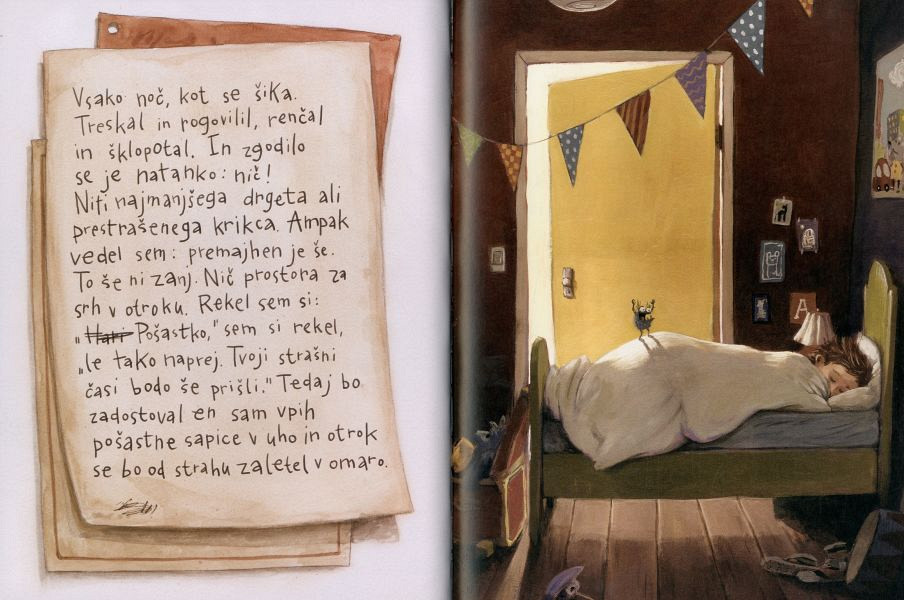 Vsako noč, kot se šika.
Treskal in rogovilil, renčal
in šklopotal. In zgodilo
se je natanko: nič!
Niti najmanjšega drgeta ali
prestrašenega krikca. Ampak
vedel sem: premajhen je še.
To še ni zanj. Nič prostora za
srh v otroku. Rekel sem si:
„Hati Pošastko," sem si rekel,
„le tako naprej. Tvoji strašni
časi bodo še prišli." Tedaj bo
zadostoval en sam vpih
pošastne sapice v uho in otrok
se bo od strahu zaletel v omaro.
A